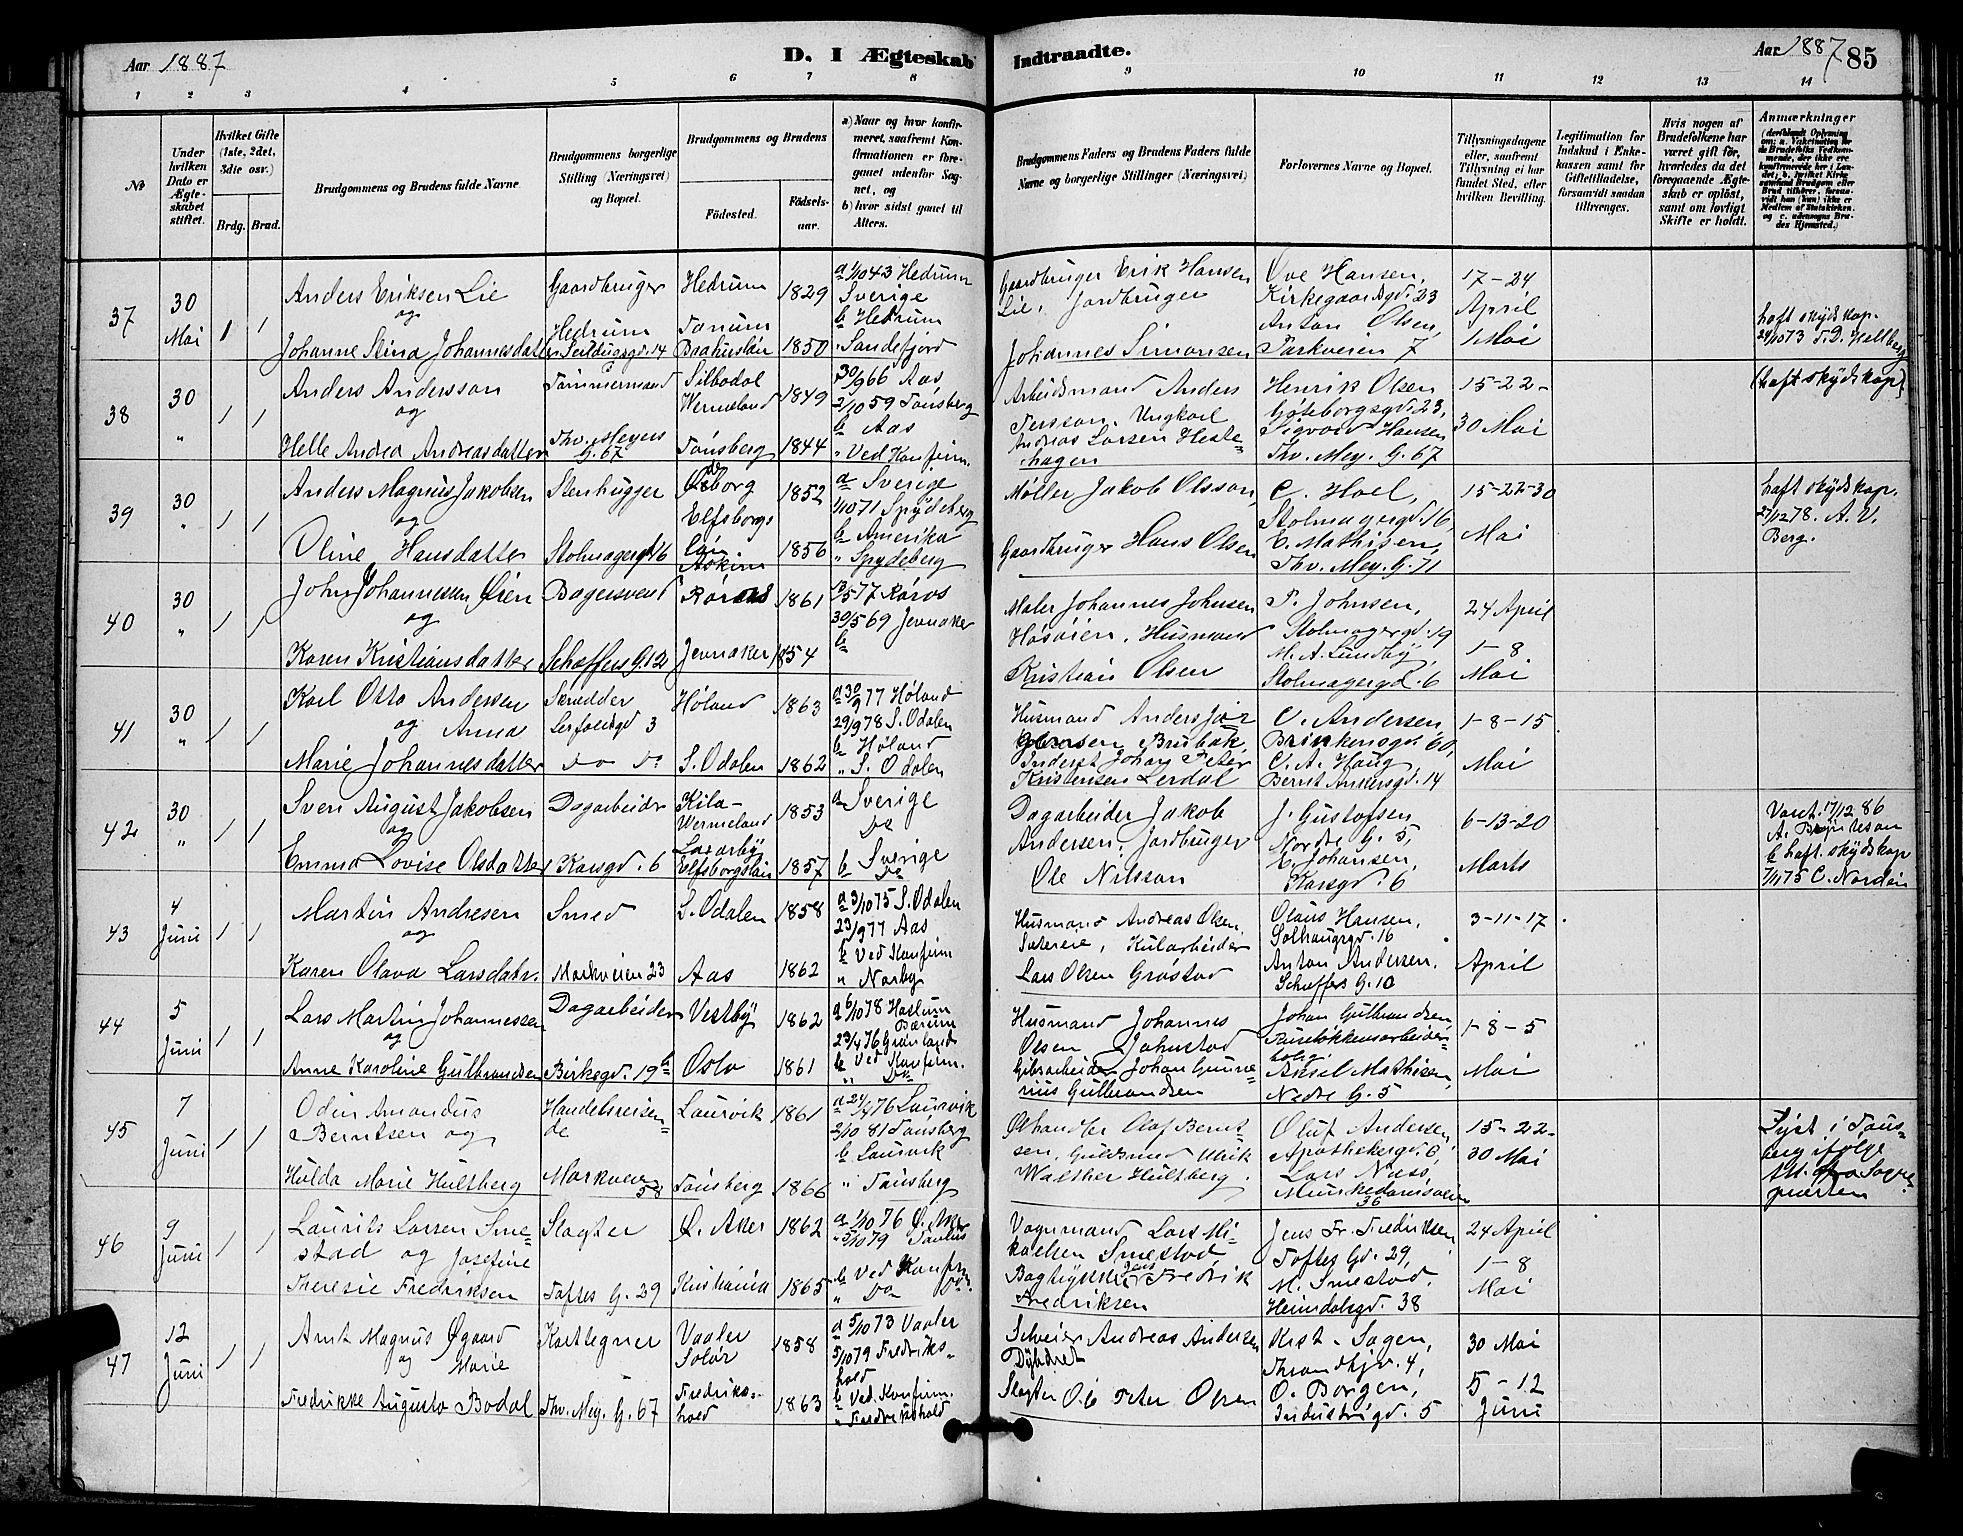 Aar 1887
D. I Ægteskab Indtraadte.
Aar 1887
85
1 2 3 4 5 6 7 8 9 10 11 12 13 14
№
Under hvilken Dato er Ægteskabet stiftet.
Hvilket Gifte (1ste, 2det, 3die osv.)
Brdg. Brud.
Brudgommens og Brudens fulde Navne
Brudgommens borgerlige Stilling (Næringsvei) og Bopæl.
Brudgommens og Brudens
Fødested.
Fødselsaar.
a) Naar og hvor konfirmeret, saafremt Konfirmationen er foregaaet udenfor Sognet, og
b) hvor sidst gaaet til Alters.
Brudgommens Faders og Brudens Faders fulde Navne og borgerlige Stillinger (Næringsvei)
Forlovernes Navne og Bopæl.
Tillysningsdagene eller, saafremt Tillysning ei har fundet Sted, efter hvilken Bevilling.
Legitimation for Indskud i Enkekassen samt for Giftetilladelse, forsaavidt saadan tiltrænges.
Hvis nogen af Brudefolkene har været gift før, hvorledes da det foregaaende Ægteskab er opløst, samt om lovligt Skifte er holdt.
Anmærkninger
37
30 Mai
1 1
Anders Eriksen Lie
og
Johanne Stina Johannesdatter
Gaardbruger
Hedrum
Seilduksgd. 14
Hedrum 1829
Tanum
Baahuslän 1850
a 1/10 43 Hedrum
Sverige
b Hedrum
" Sandefjord
Gaardbruger Erik Hansen
Lie, Jordbruger
Johannes Simonsen
Ove Hansen,
Kirkegaardsgd. 23
Anton Olsen,
Parkveien 7
17-24
April
1 Mai
haft skydskop.
24/10 73 T. D. Hellberg
38
30 "
1 1
Anders Andersson
og
Helle Andrea Andreasdatter
Tømmermand
Thv. Meyers
G. 67
Silbodal
Wermeland 1849
Tønsberg 1844
30/9 66 Aas
2/10 59 Tønsberg
b Aas
" Ved Konfirm.
Arbeidsmand Anders
Persson, Ungkarl
Andreas Larsen Hestehagen
Henrik Olsen
Gøteborgsgd. 23,
Sigvard Hansen
Thv. Mey. G. 67
15-22-
30 Mai
(haft skydskop)
39
30 "
1 1
Anders Magnus Jakobsen
og
Oline Hansdatter
Stenhugger
Stolmagergd 16
Ødborg 1852
Elfsborgs
län
Askim 1856
a Sverige
1/10 71 Spydeberg
b Amerika
" Spydeberg
Møller Jakob Olsson,
Gaardbruger Hans Olsen
C. Hoel,
Stolmagergd. 16
C. Mathisen,
Thv. Mey. G. 71
15-22-30
Mai
haft skydskop.
27/12 78. A. V.
Berg.
40
30 "
1 1
John Johannessen Øien
og
Karen Kristiansdatter
Bagersvend
Schæffers G. 12
Røros 1861
Jevnaker 1854
13/5 77 Røros
30/5 69 Jevnaker
b
Maler Johannes Johnsen
Høsøien, Husmand
Kristian Olsen
P. Johnsen,
Stolmagergd. 19
M. A. Lundby,
Stolmagergd. 6
24 April
1-8
Mai
41
30 "
1 1
Karl Otto Andersen
og Anna
Marie Johannesdatter
Skrædder
Leirfaldsgd 3
do do
Høland 1863
S. Odalen 1862
a 30/9 77 Høland
29/9 78 S. Odalen
b Høland
" S. Odalen
Husmand Anders
Brubak,
Inderst Johan Peter
Kristensen Lerdal
C. Andersen
Brinkensgd. 60,
C. A. Haug,
Bernt Ankersgd. 14
1-8-15
Mai
42
30 "
1 1
Sven August Jakobsen
og
Emma Lovise Olsdatter
Dagarbeider
Korsgd. 6
Kila-
Wermeland 1853
Laxarby
Elfsborgslän 1857
a Sverige
Do
b Sverige
Do
Dagarbeider Jakob
Andersen, Jordbruger
Ole Nilsson
J. Gustafsen
Nordre G. 5,
E. Johansen,
Korsgd. 6
6-13-20
Marts
Varet. 17/12 86
A.
b haft. skydskop
7/11 75 C. Nordin
43
4 Juni
1 1
Martin Andresen
og
Karen Olava Larsdatr.
Smed
Markveien 23
S. Odalen 1858
Aas 1862
a 3/10 75 S. Odalen
23/9 77 Aas
b Ved Konfirm
" Norby
Husmand Andreas Olsen
Sætereie, Kularbeider
Lars Olsen Grøstad
Olaus Hansen,
Solhaugsgd. 16
Anton Andersen,
Scheffers G. 10
3-11-17
April
44
5 Juni
1 1
Lars Martin Johannessen
og
Anne Karoline Gulbrandsen
Dagarbeider
Birkegd. 19 b
Vestby 1862
Oslo 1861
a 6/10 78 Haslum
Bærum
23/4 76 Grønland
b Ved Konfirm.
" Do
Husmand Johannes
Olsen Johnstad
Johan Gunnerius Gulbrandsen
Johan Gulbrandsen
Ruseløkkensarbeiderbolig
Aksel Mathisen,
Nedre G. 5
1-8-5
Mai
45
7 Juni
1 1
Odin Amandus
Berntsen og
Hulda Marie Hultberg
Handelsreisende
Markveien
58
Laurvik 1861
Tønsberg 1866
a 24/4 76 Laurvik
2/10 81 Tønsberg
b Laurvik
" Tønsberg
Ølhandler Olaf Berntsen, Guldsmed Ulrik
Walther Hultberg.
Oluf Andersen,
Apothekergd. 6,
Lars Næss,
Munkedamsveien
36
15-22-
30 Mai
Lyst i Tønsberg ifølge
Att. fra Sognepræsten
46
9 Juni
1 1
Laurits Larsen Smestad og Josefine
Theresie Fredriksen
Slagter
Toftes G. 29
Ø. Aker 1862
Kristiania 1865
a 1/10 76 Ø. Aker
" 5/10 79 Paulus
b Ved Konfirm
" Do Do.
Vognmand Lars Mikaelsen Smestad
Jens Fredrik
Fredriksen
Jens Fr. Fredriksen
Toftes Gd. 29,
M. Smestad,
Heimdalsgd. 38
24 April
1-8
Mai
47
12 Juni
1 1
Arnt Magnus Øgaard
og Marie
Fredrikke Augusta Bodal
Karttegner
Thv. Mey. G. 67
Vaaler
Solør 1858
Fredrikshald 1863
a 5/10 73 Vaaler
5/10 79 Fredrikshald
b Ved. Konfirm.
" Fredrikshald
Selveier Andreas Andersen
Dybdret
Slagter Ole Peter Olsen
Krist. Sagen,
Throndhjv. 4,
O. Borgen,
Industrigd. 5
30 Mai
5-12
Juni